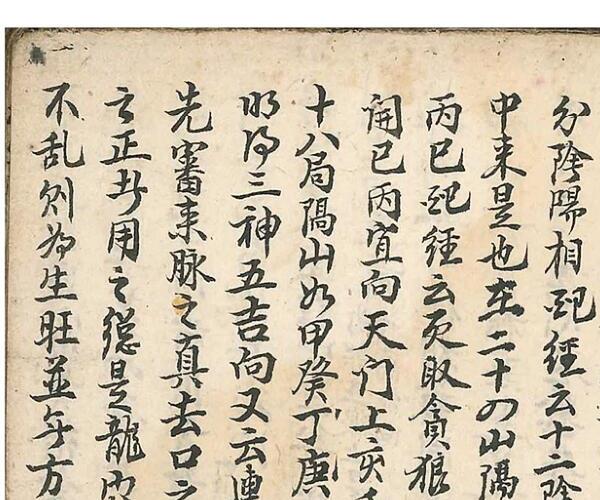 分陰陽相配經云十二陰
中来是也在二十四山隔
丙巳配經云天取貪狼
開巳丙宜向天门上亥
十八局隔山如甲癸丁庚
明得三神五吉向又云連
先審来脉之真去口之
云正者用之總是龍
不乱则為生旺並方